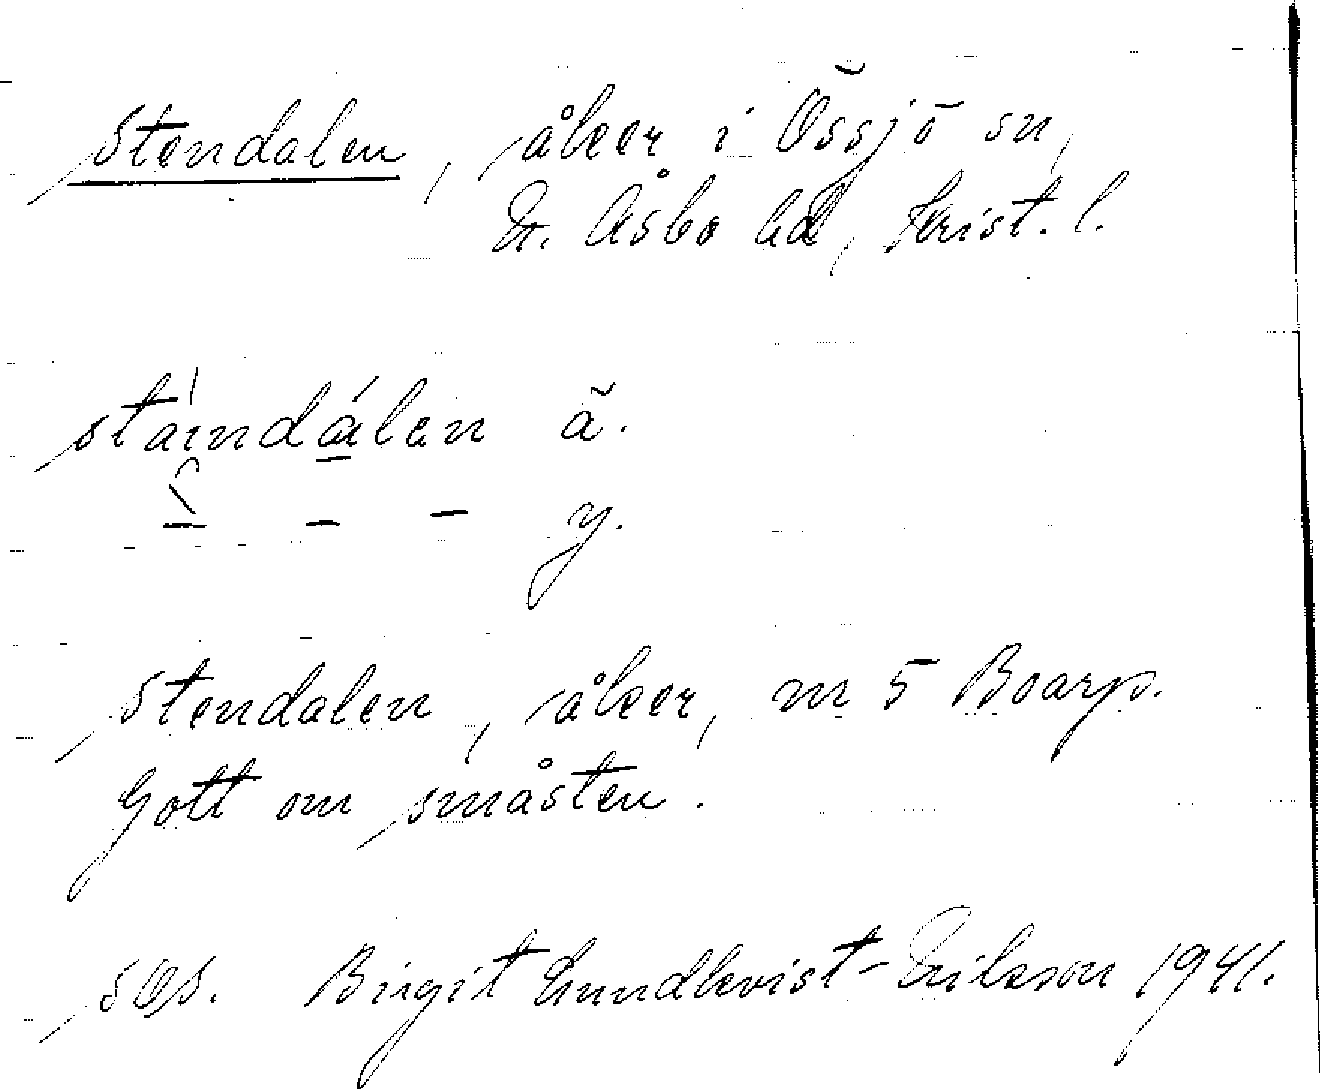 Stendalen, åker i Össjö sn,
N. Åsbo hd, Krist. l.
stàindálen ä.
- - - y.
Stendalen, åker, m 5 Boarp.
Gott om småsten.
Birgit Lundkvist-Eriksson 1941.